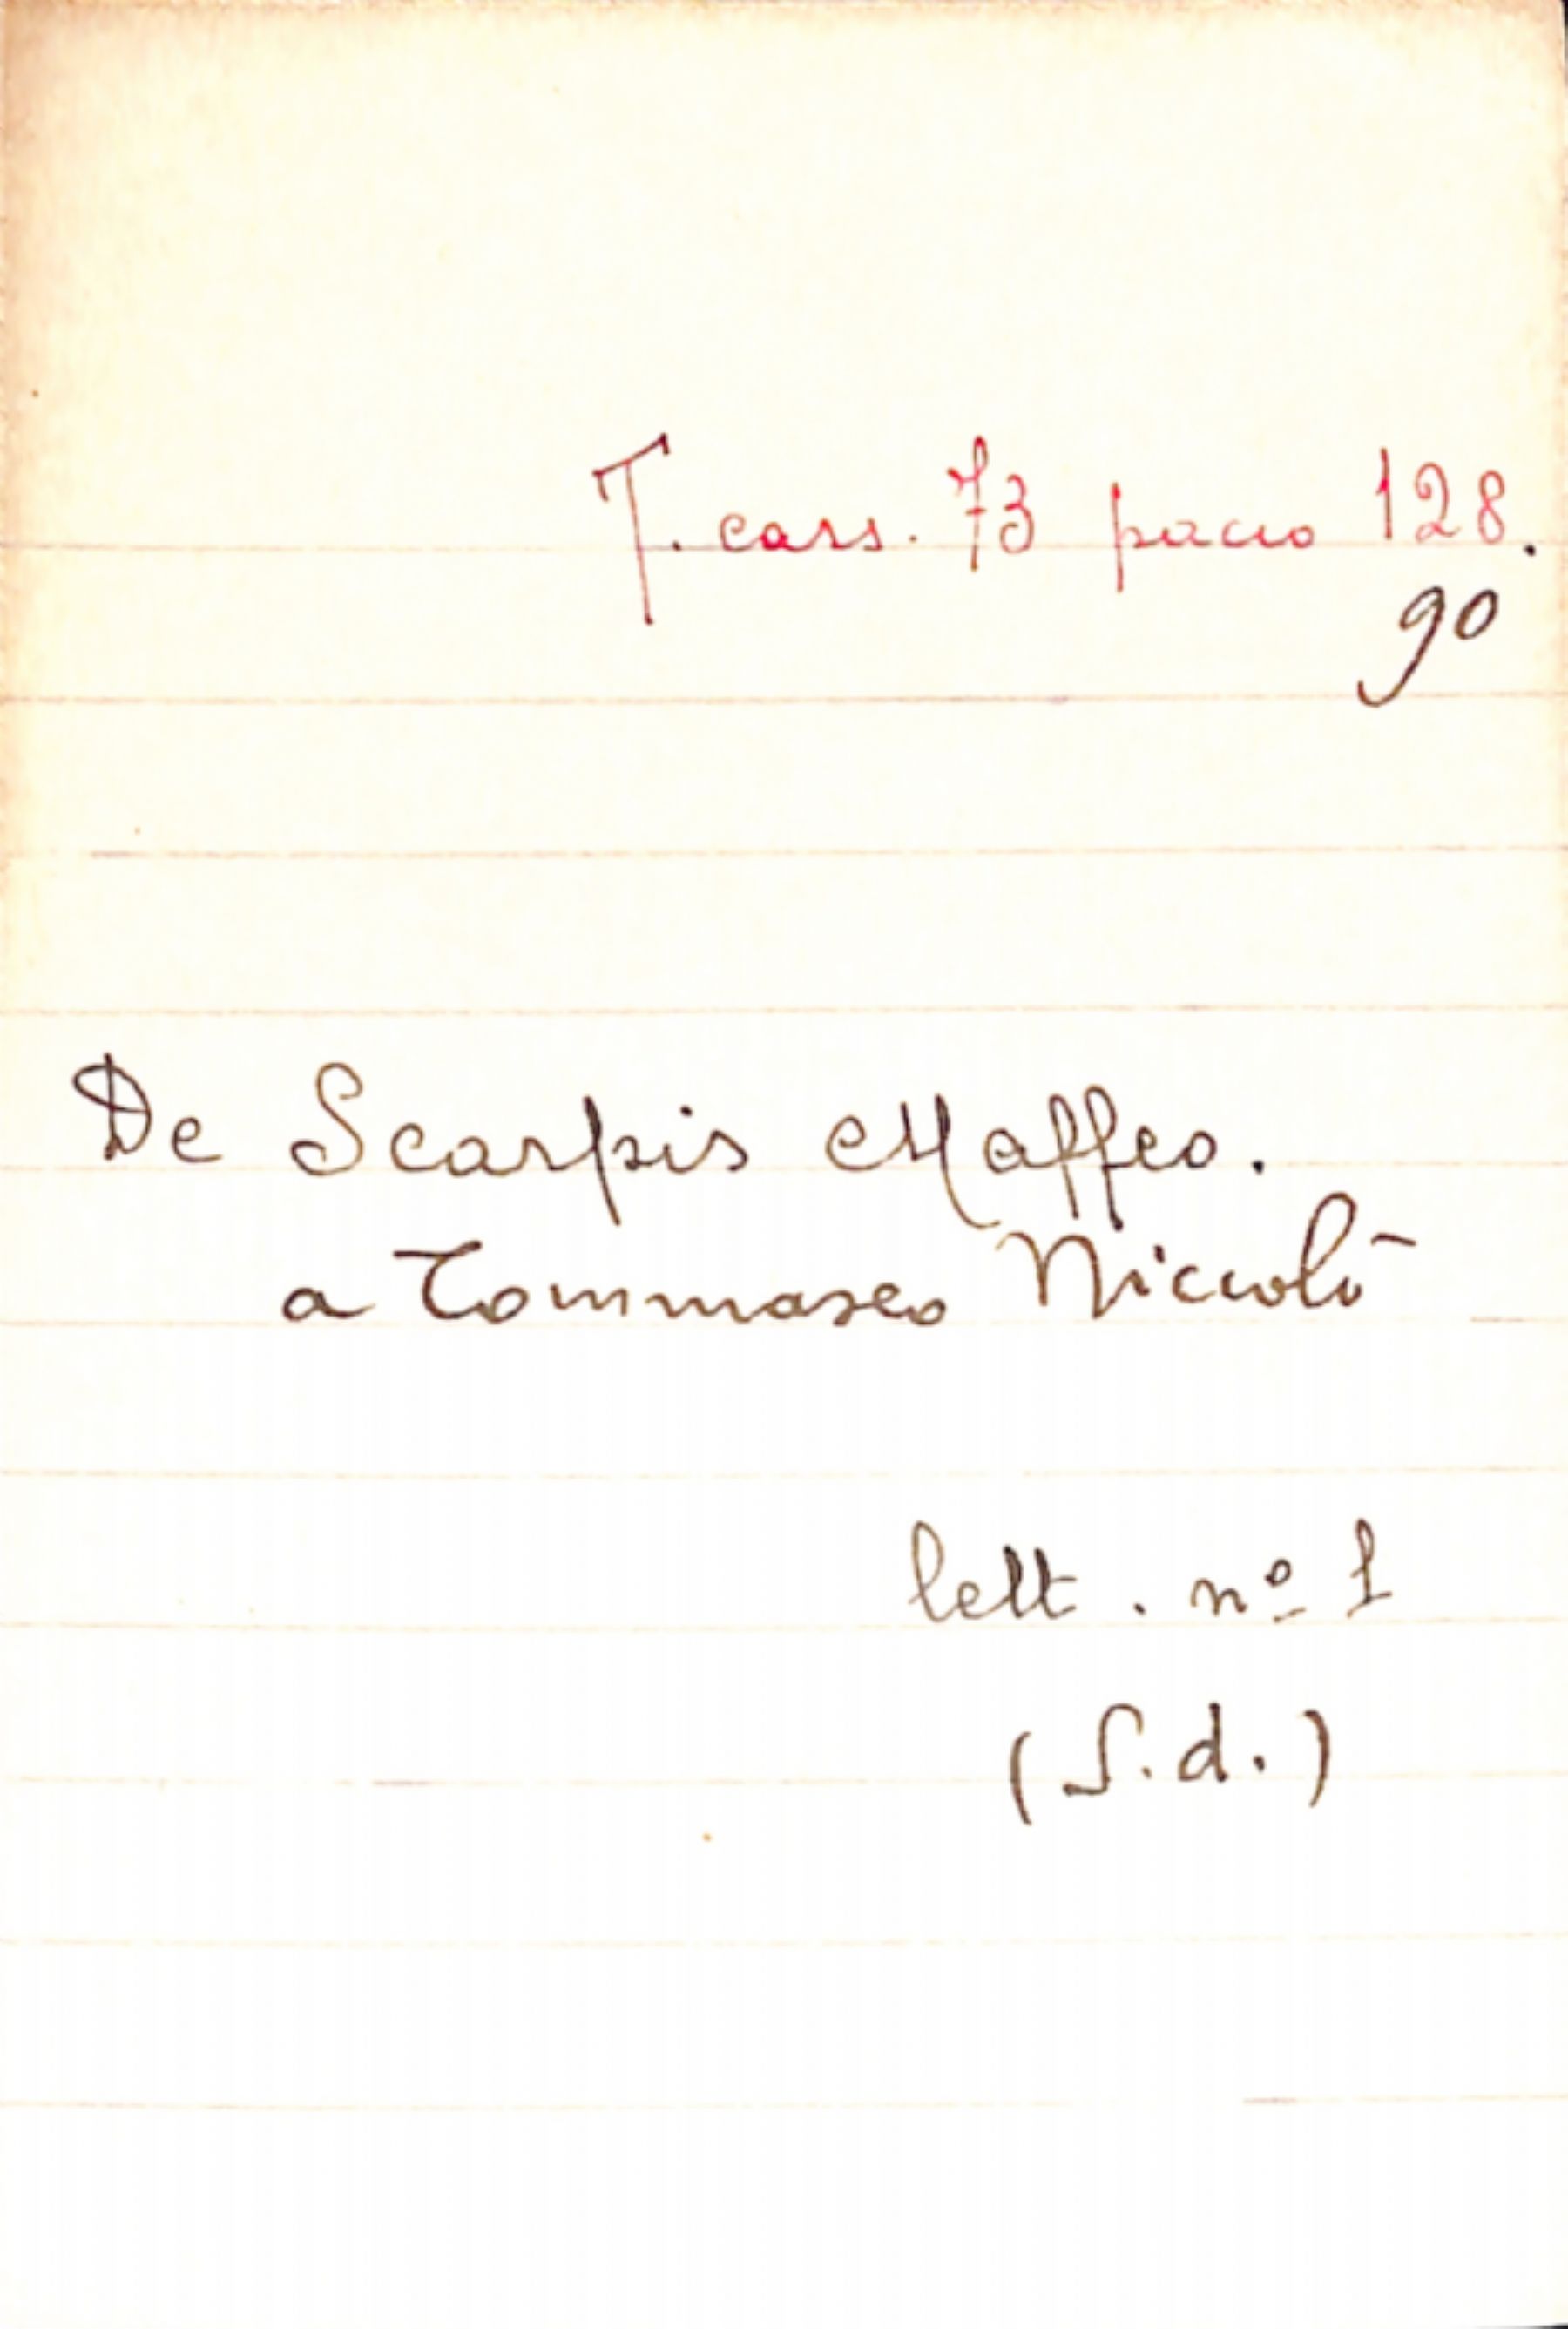 T. cass. 73 pacco 128.
90
De Scarpis Maffeo.
a Tommaseo Niccolò
lett. nº 1
(S.d.)